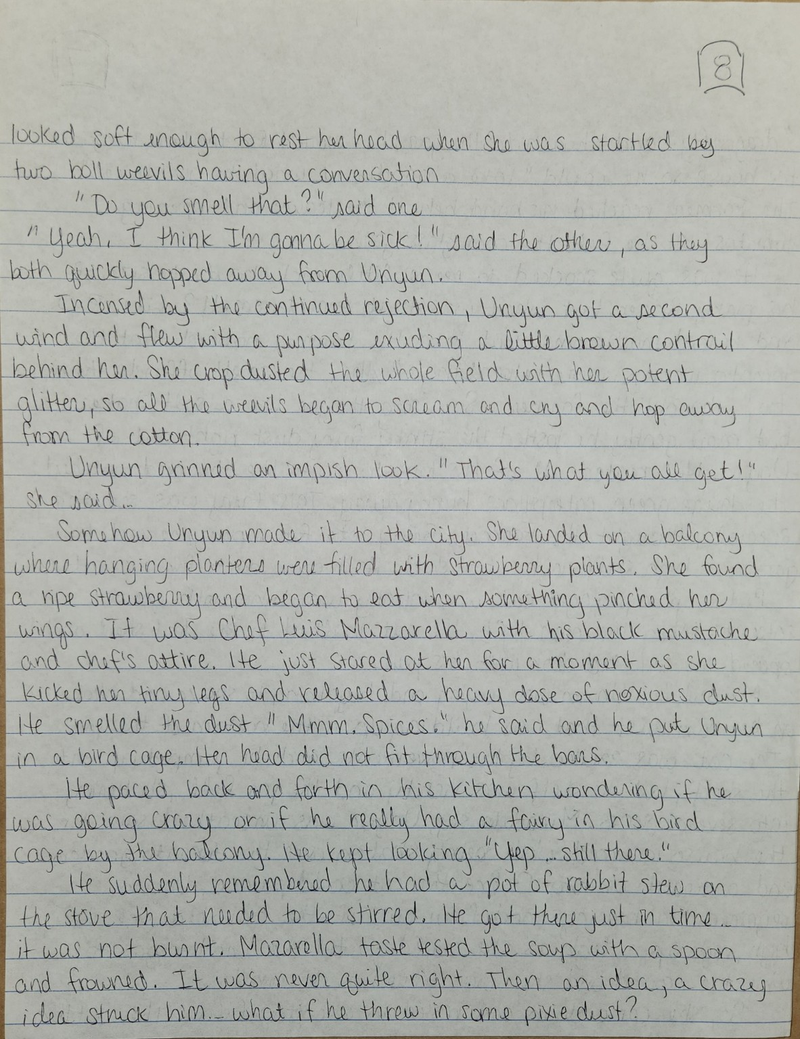 8
looked soft enough to rest her head when she was startled by
two boll weevils having a conversation
"Do you smell that?" said one
"Yeah, I think I'm gonna be sick!" said the other, as they
both quickly hopped away from Unyun.
Incensed by the continued rejection, Unyun got a second
wind and flew with a purpose exuding a little brown contrail
behind her. She crop dusted the whole field with her potent
glitter, so all the weevils began to scream and cry and hop away
from the cotton.
Unyun grinned an impish look. "That's what you all get!"
she said...
Somehow Unyun made it to the city. She landed on a balcony
where hanging planters were filled with strawberry plants. She found
a ripe strawberry and began to eat when something pinched her
wings. It was Chef Luis Mazzarella with his black mustache
and chef's attire. He just stared at her for a moment as she
kicked her tiny legs and released a heavy dose of noxious dust.
He smelled the dust "Mmm. Spices." he said and he put Unyun
in a bird cage. Her head did not fit through the bars.
He paced back and forth in his kitchen wondering if he
was going crazy or if he really had a fairy in his bird
cage by the balcony. He kept looking "Yep...still there."
He suddenly remembered he had a pot of rabbit stew on
the stove that needed to be stirred. He got there just in time...
it was not burnt. Mazarella taste tested the soup with a spoon
and frowned. It was never quite right. Then an idea, a crazy
idea struck him... what if he threw in some pixie dust?